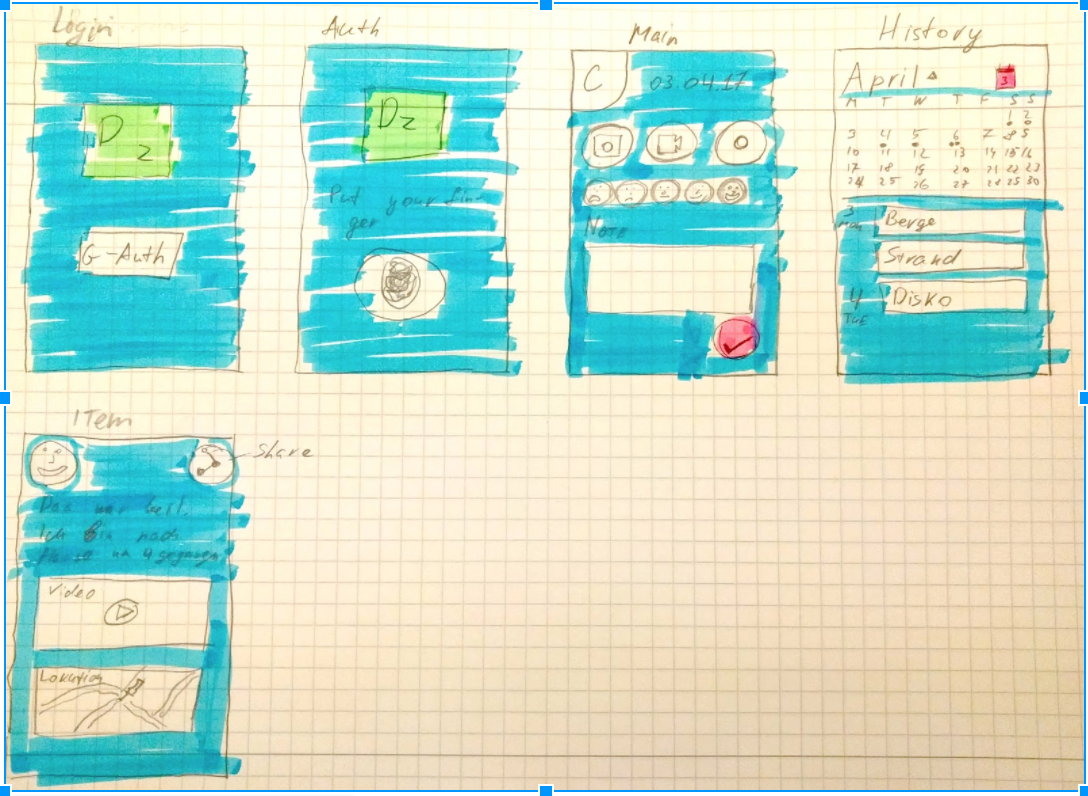 Login
D
z
G-Auth
Auth
Dz
Put your fin-
ger
Main
C
03.04.17
Note
History
April
3
M T W T F S S
1 2
3 4 5 6 7 8 9
10 11 12 13 14 15 16
17 18 19 20 21 22 23
24 25 26 27 28 29 30
3
Mon
Berge
Strand
4
Tue
Disko
ITem
Share
Das war
Ich bin nach
um 4 gegangen
Video
Location